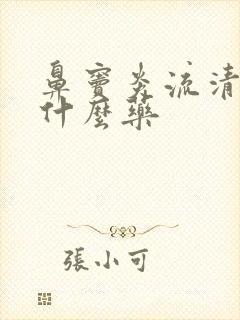 鼻竇炎流清
什麼藥
張小可